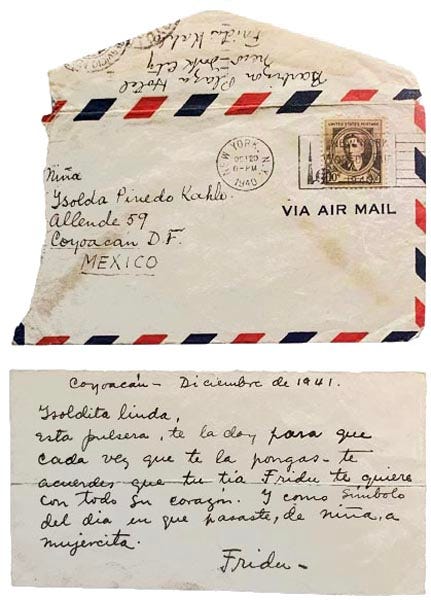 Frida Kahlo
Barbizon Plaza Hotel
New York City
NEW YORK, N.Y.
OCT 20
6-PM
1940
UNITED STATES POSTAGE
10c
NEW YORK
1940
VIA AIR MAIL
Niña
Ysolda Pinedo Kahlo.
Allende 59
Coyoacán D.F.
MEXICO
Coyoacán - Diciembre de 1941.
Ysoldita linda,
esta pulsera, te la doy para que
cada vez que te la pongas - te
acuerdes que tu tía Fridu te quiere
con todo su corazón. Y como símbolo
del dia en que pasaste, de niña, a
mujercita.
Fridu -